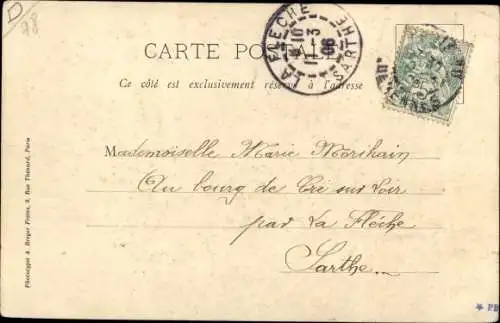 D
78
CARTE POSTALE
Ce côté est exclusivement réservé à l'adresse
LA FLECHE
SARTHE
11 - 3
06
Mademoiselle Marie Morihain
Au bourg de Cré sur Loir
par La Flèche
Sarthe
Phototypie A. Berger Frères, 9, Rue Thénard, Paris